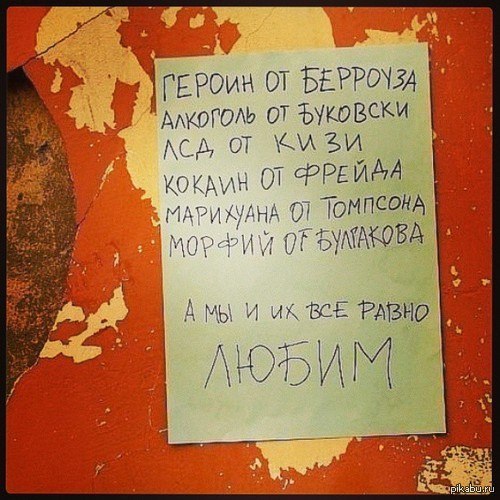 ГЕРОИН ОТ БЕРРОУЗА
АЛКОГОЛЬ ОТ БУКОВСКИ
ЛСД ОТ КИЗИ
КОКАИН ОТ ФРЕЙДА
МАРИХУАНА ОТ ТОМПСОНА
МОРФИЙ ОТ БУЛГАКОВА
А МЫ И ИХ ВСЕ РАВНО
ЛЮБИМ
pikabu.ru